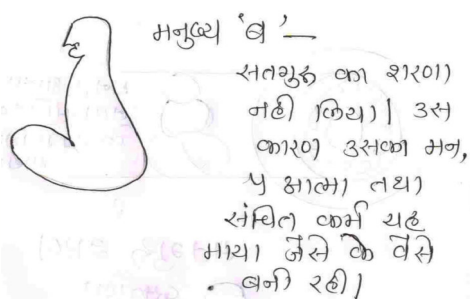 मनुष्य 'ब' —
सतगुरु का शरणा
नही लिया। उस
कारण उसका मन,
५ आत्मा तथा
संचित कर्म यह
माया जैसे के वैसे
बनी रही।